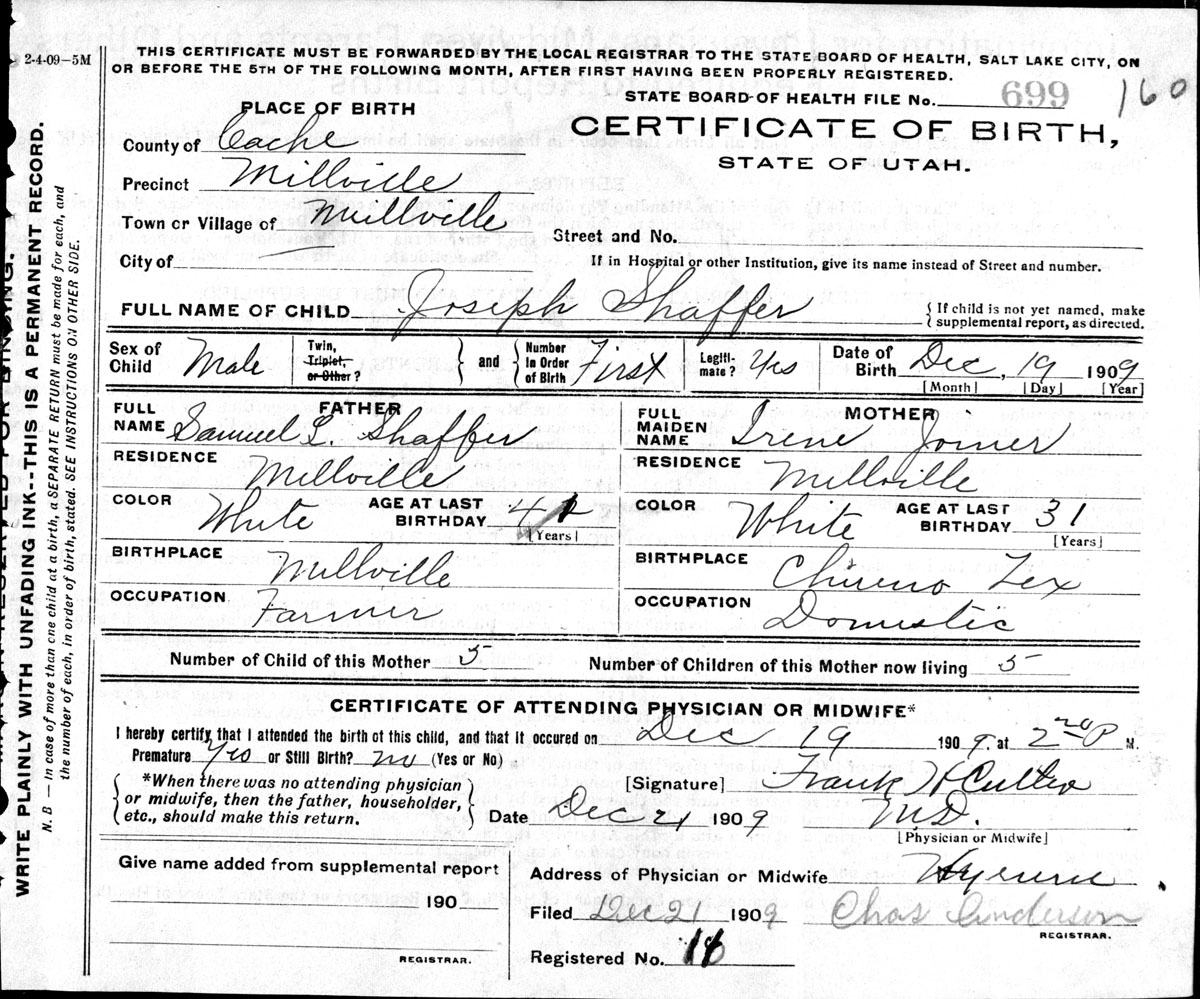 2-4-09-5M
THIS CERTIFICATE MUST BE FORWARDED BY THE LOCAL REGISTRAR TO THE STATE BOARD OF HEALTH, SALT LAKE CITY, ON
OR BEFORE THE 5TH OF THE FOLLOWING MONTH, AFTER FIRST HAVING BEEN PROPERLY REGISTERED.
STATE BOARD OF HEALTH FILE No. 699 160
PLACE OF BIRTH
CERTIFICATE OF BIRTH,
STATE OF UTAH.
County of Cache
Precinct Millville
Town or Village of Millville
Street and No.
City of
If in Hospital or other Institution, give its name instead of Street and number.
FULL NAME OF CHILD Joseph Shaffer { If child is not yet named, make
supplemental report, as directed.
Sex of Child Male Twin, Triplet, or Other? } and { Number In Order of Birth First Legiti-mate? Yes Date of Birth Dec, 19 1909
[Month] [Day] [Year]
FATHER
FULL NAME Samuel L. Shaffer
RESIDENCE Millville
COLOR White AGE AT LAST BIRTHDAY
[Years]
BIRTHPLACE Millville
OCCUPATION Farmer
MOTHER
FULL MAIDEN NAME Irene Joiner
RESIDENCE Millville
COLOR White AGE AT LAST BIRTHDAY 31
[Years]
BIRTHPLACE Chireno Tex
OCCUPATION Domestic
Number of Child of this Mother 5 Number of Children of this Mother now living 5
CERTIFICATE OF ATTENDING PHYSICIAN OR MIDWIFE*
I hereby certify that I attended the birth of this child, and that it occured on Dec 19 1909. at 2 P M.
Premature Yes or Still Birth? no (Yes or No)
*When there was no attending physician
or midwife, then the father, householder,
etc., should make this return.
[Signature] Frank H Cutler
Date Dec 21 1909 M.D.
[Physician or Midwife]
Give name added from supplemental report
190
REGISTRAR.
Address of Physician or Midwife
Filed Dec 21 1909 Chas Anderson
REGISTRAR.
Registered No.
MARGIN RESERVED FOR BINDING.
WRITE PLAINLY WITH UNFADING INK--THIS IS A PERMANENT RECORD.
N. B — In case of more than one child at a birth, a SEPARATE RETURN must be made for each, and
the number of each, in order of birth, stated. SEE INSTRUCTIONS ON OTHER SIDE.